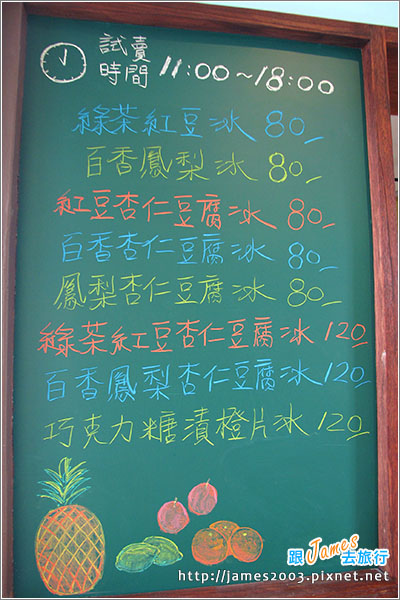 試賣
時間 11:00~18:00
綠茶紅豆冰 80
百香鳳梨冰 80
紅豆杏仁豆腐冰 80
百香杏仁豆腐冰 80
鳳梨杏仁豆腐冰 80
綠茶紅豆杏仁豆腐冰 120
百香鳳梨杏仁豆腐冰 120
巧克力糖漬橙片冰 120
跟James去旅行
http://james2003.pixnet.net